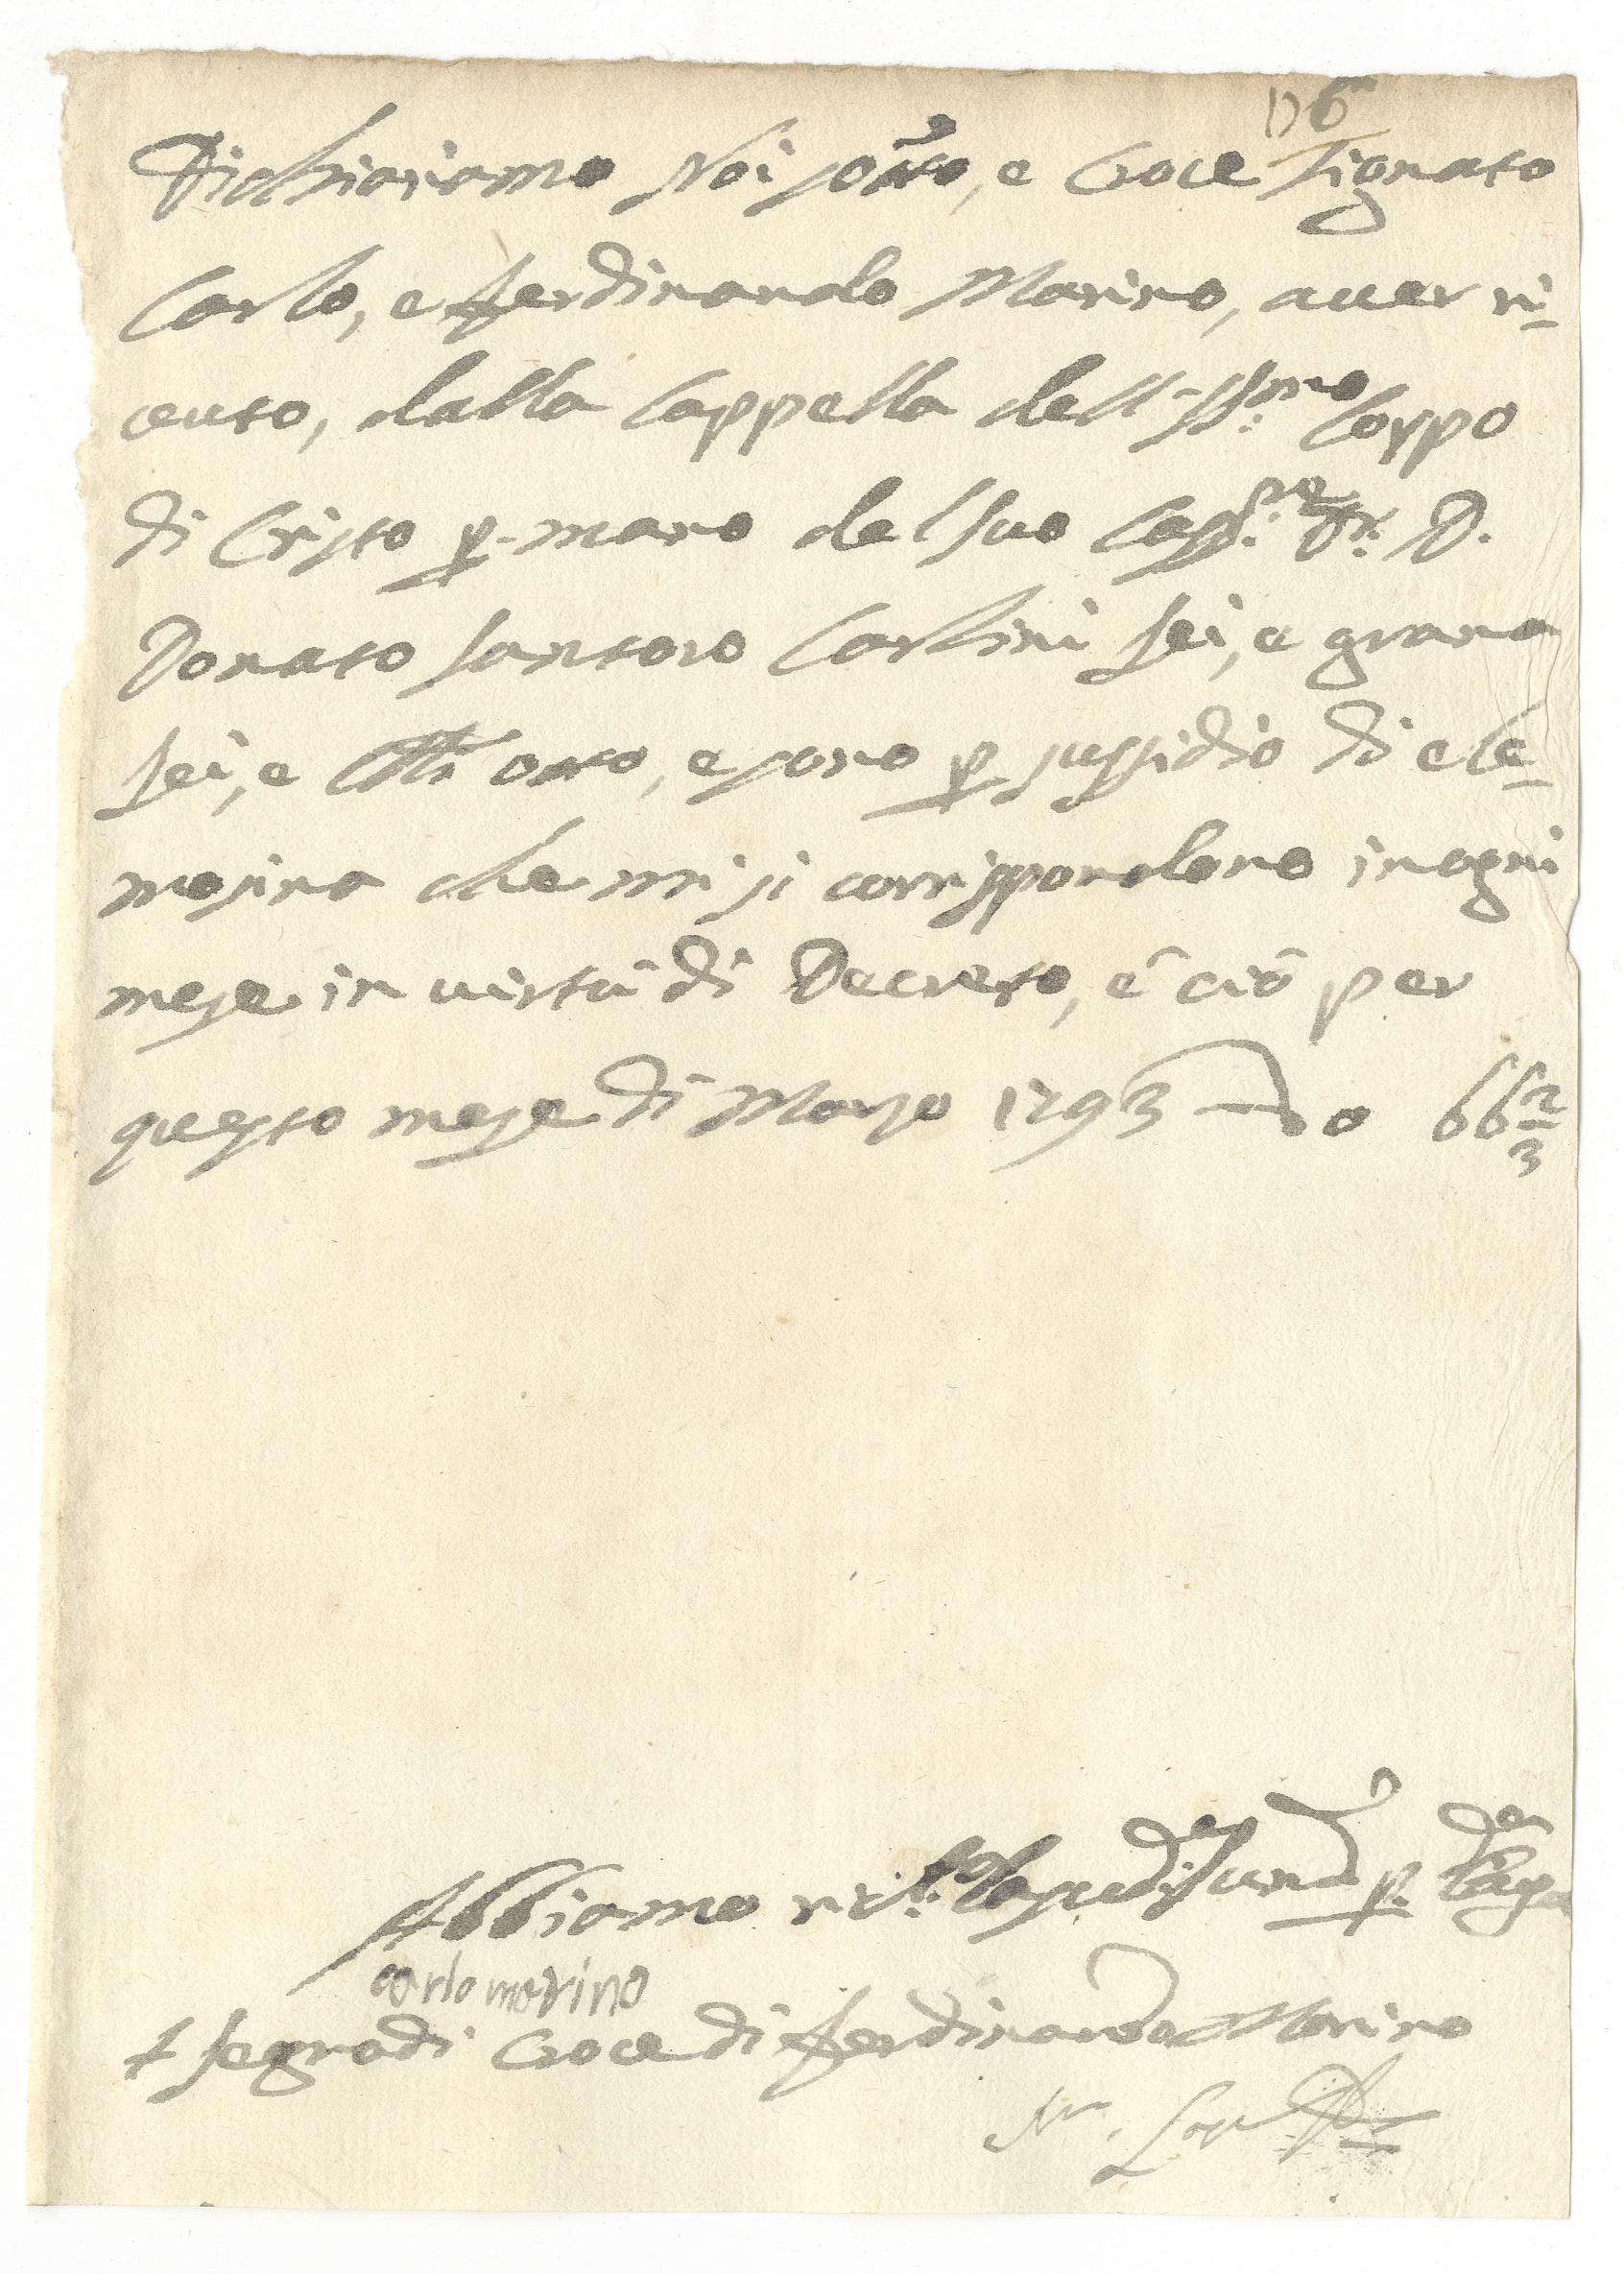 Dichiariamo Noi sotto, e Croce Signato
Carlo, e Ferdinando Marino, aver ri-
ceuto, dalla Cappella dell' SS:mo Corpo
di Cristo p. mano del Suo Cass:re Dr: D.
Donato Santoro Carlini sei, e grana
sei, e Clli otto, e sono p sussidio di ele-
mosina che mi si corrispondono in ogni
mese in virtù di Decreto, e ciò per
questo mese di Marzo 1793 — 0 66 2/3
Abbiamo p.
carlo marino
+ Segno di Croce di Ferdinando Marino